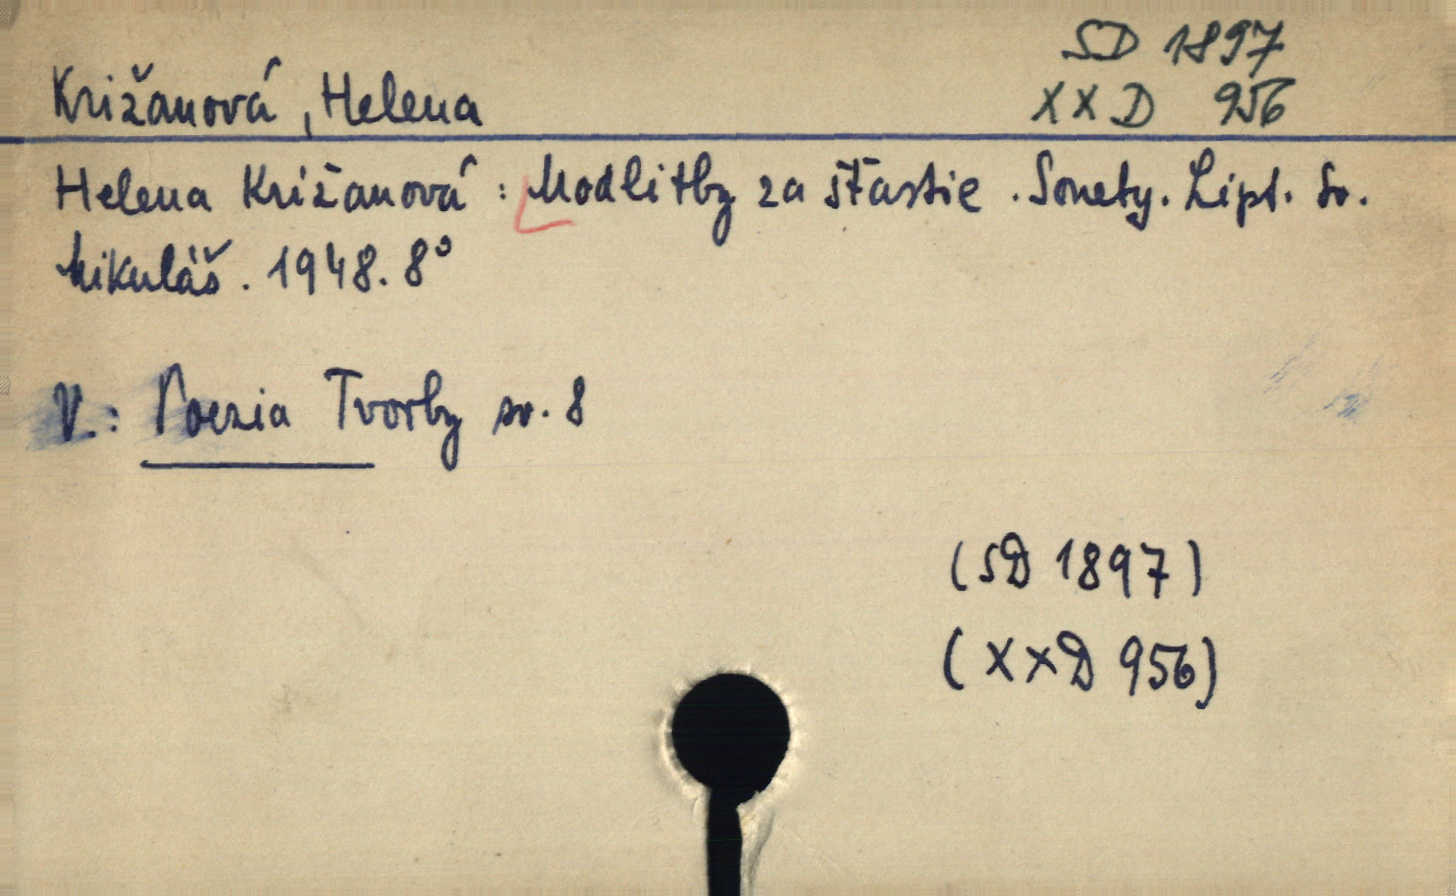 SD 1897
Križanová, Helena XXD 956
Helena Križanová: Modlitby za šťastie. Sonety. Lipt. Sv.
Mikuláš. 1948. 8°
V.: Poezia Tvorby sv. 8
(SD 1897)
(XXD 956)